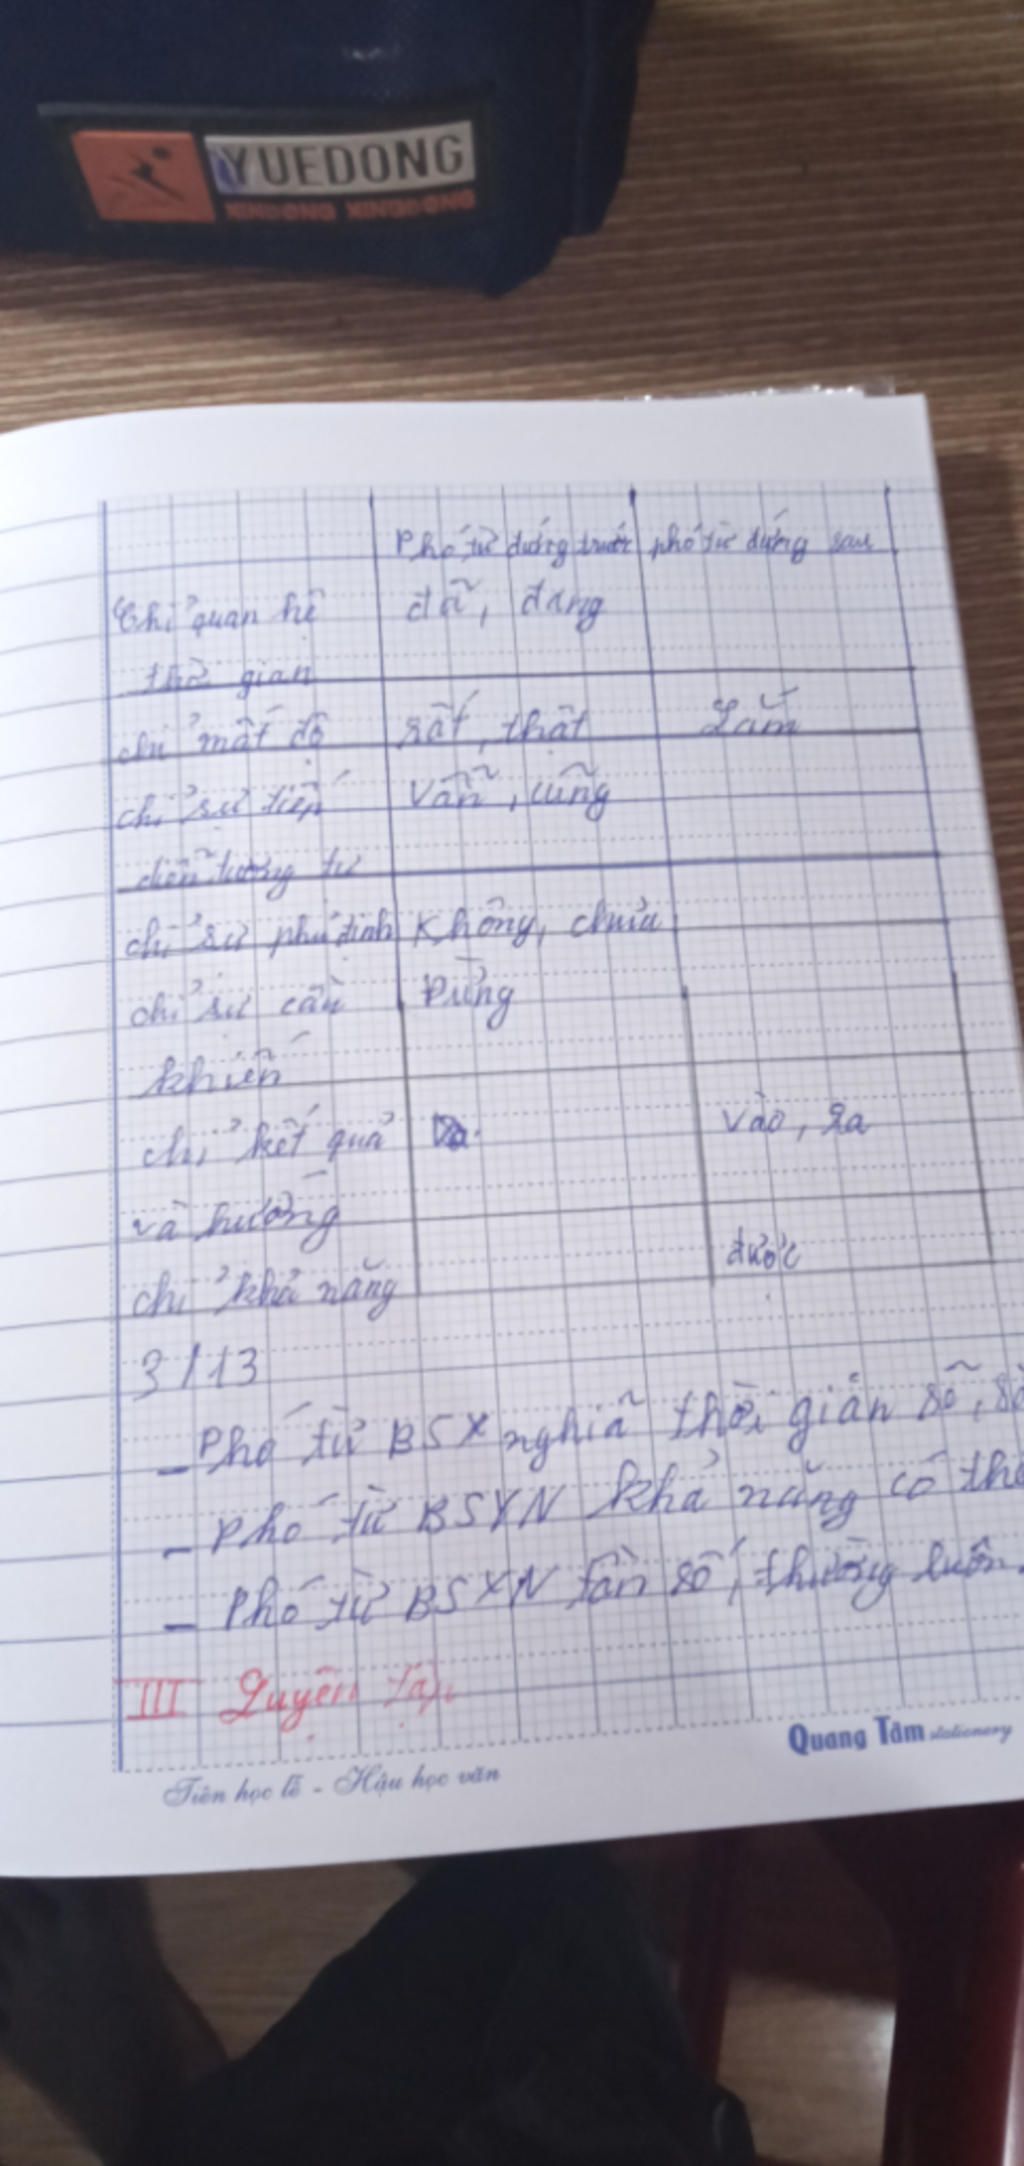 YUEDONG
XINDONG XINDONG
Phó từ đứng trước phó từ đứng sau
Chỉ quan hệ đã, đang
thời gian
chỉ mất độ rất, thật Lắm
chỉ sự tiếp vẫn, cũng
diễn tương tự
chỉ sự phủ định không, chưa
chỉ sự cầu Đừng
khiến
chỉ kết quả vào, ra
và hướng
chỉ khả năng được
3 / 13
- Phó từ BSX nghĩa thời gian số,
- Phó từ BSYN khả năng có thể
- Phó từ BSYN tần số, thường luôn
III Luyện tập
Quang Tâm stationery
Tiên học lễ - Hậu học văn